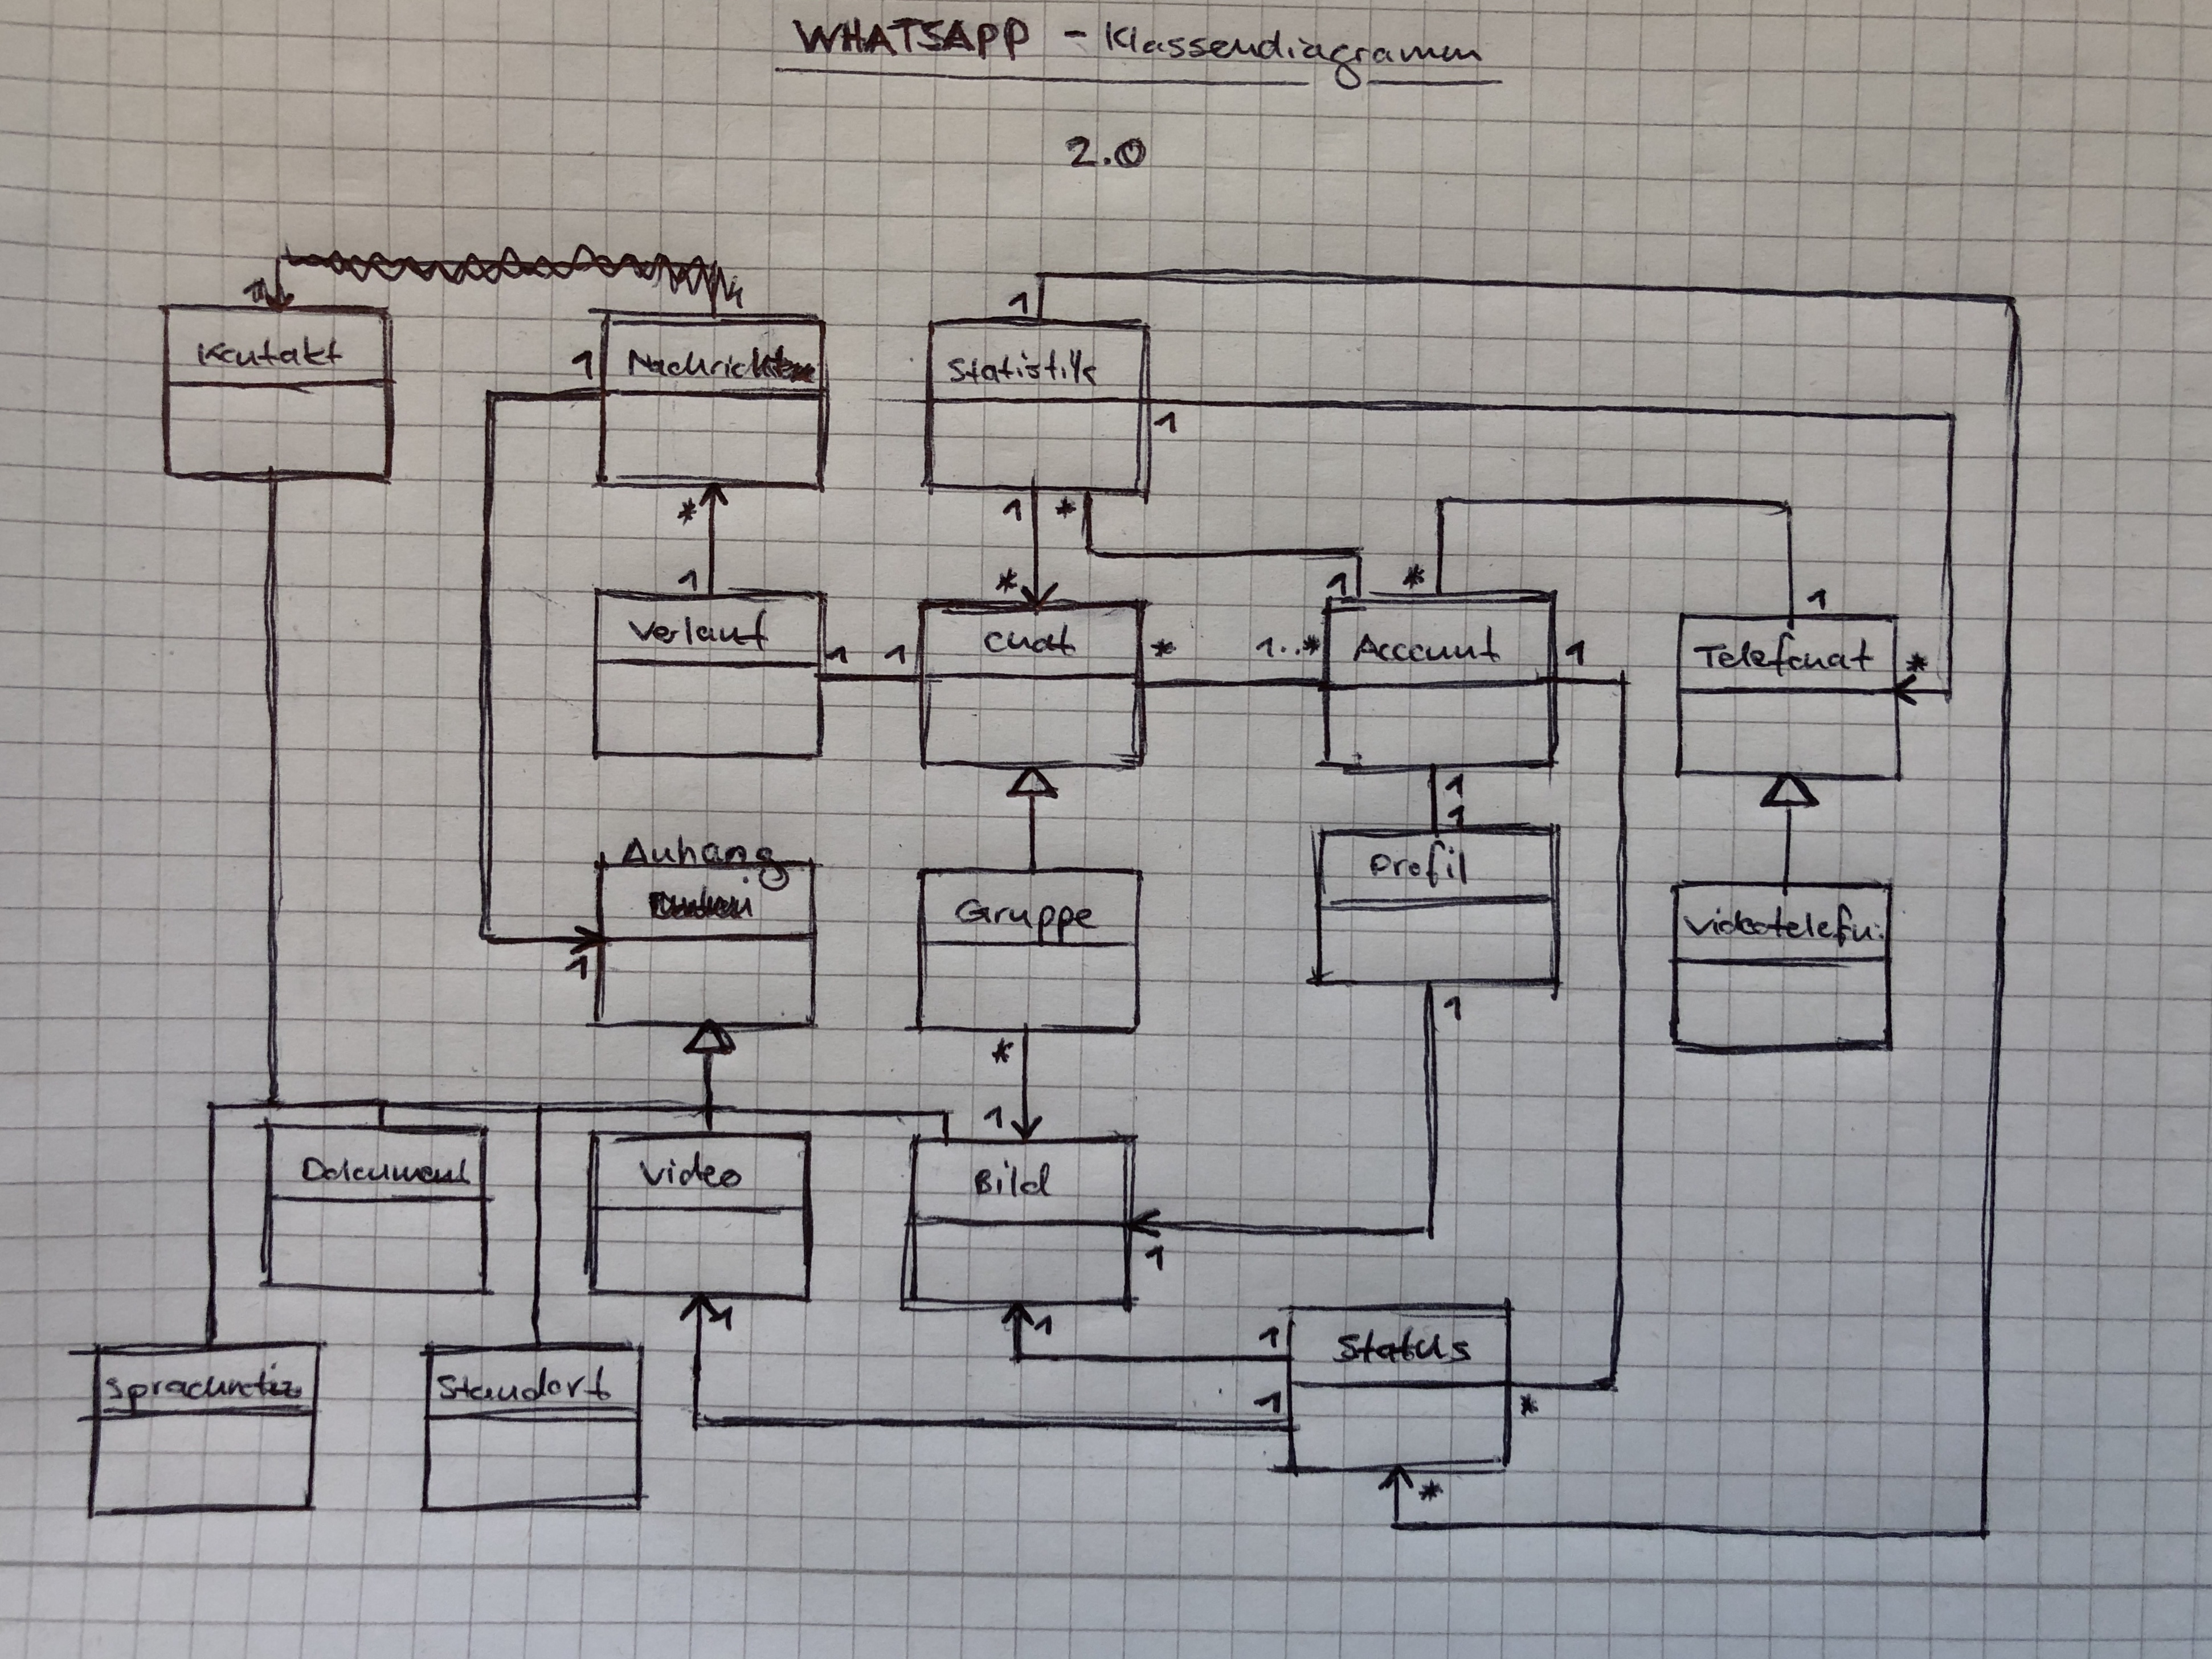 WHATSAPP - Klassendiagramm
2.0
1
Kontakt
1
Nachricht
Statistik
1
1
*
1
*
1
*
1
*
1
Verlauf
1
1
Chat
*
1..*
Account
1
Telefonat
*
1
1
Anhang
Profil
Gruppe
Videotelefn.
1
1
*
1
Dokument
Video
Bild
1
1
1
1
Status
Sprachnotiz
Standort
1
*
*